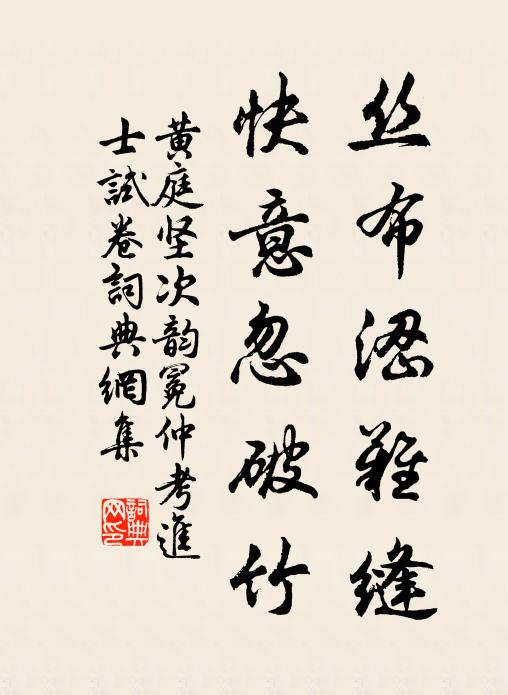 丝布涩难缝
快意忽破竹
黄庭坚次韵冕仲考進
士試卷詞典網集
詞典网印